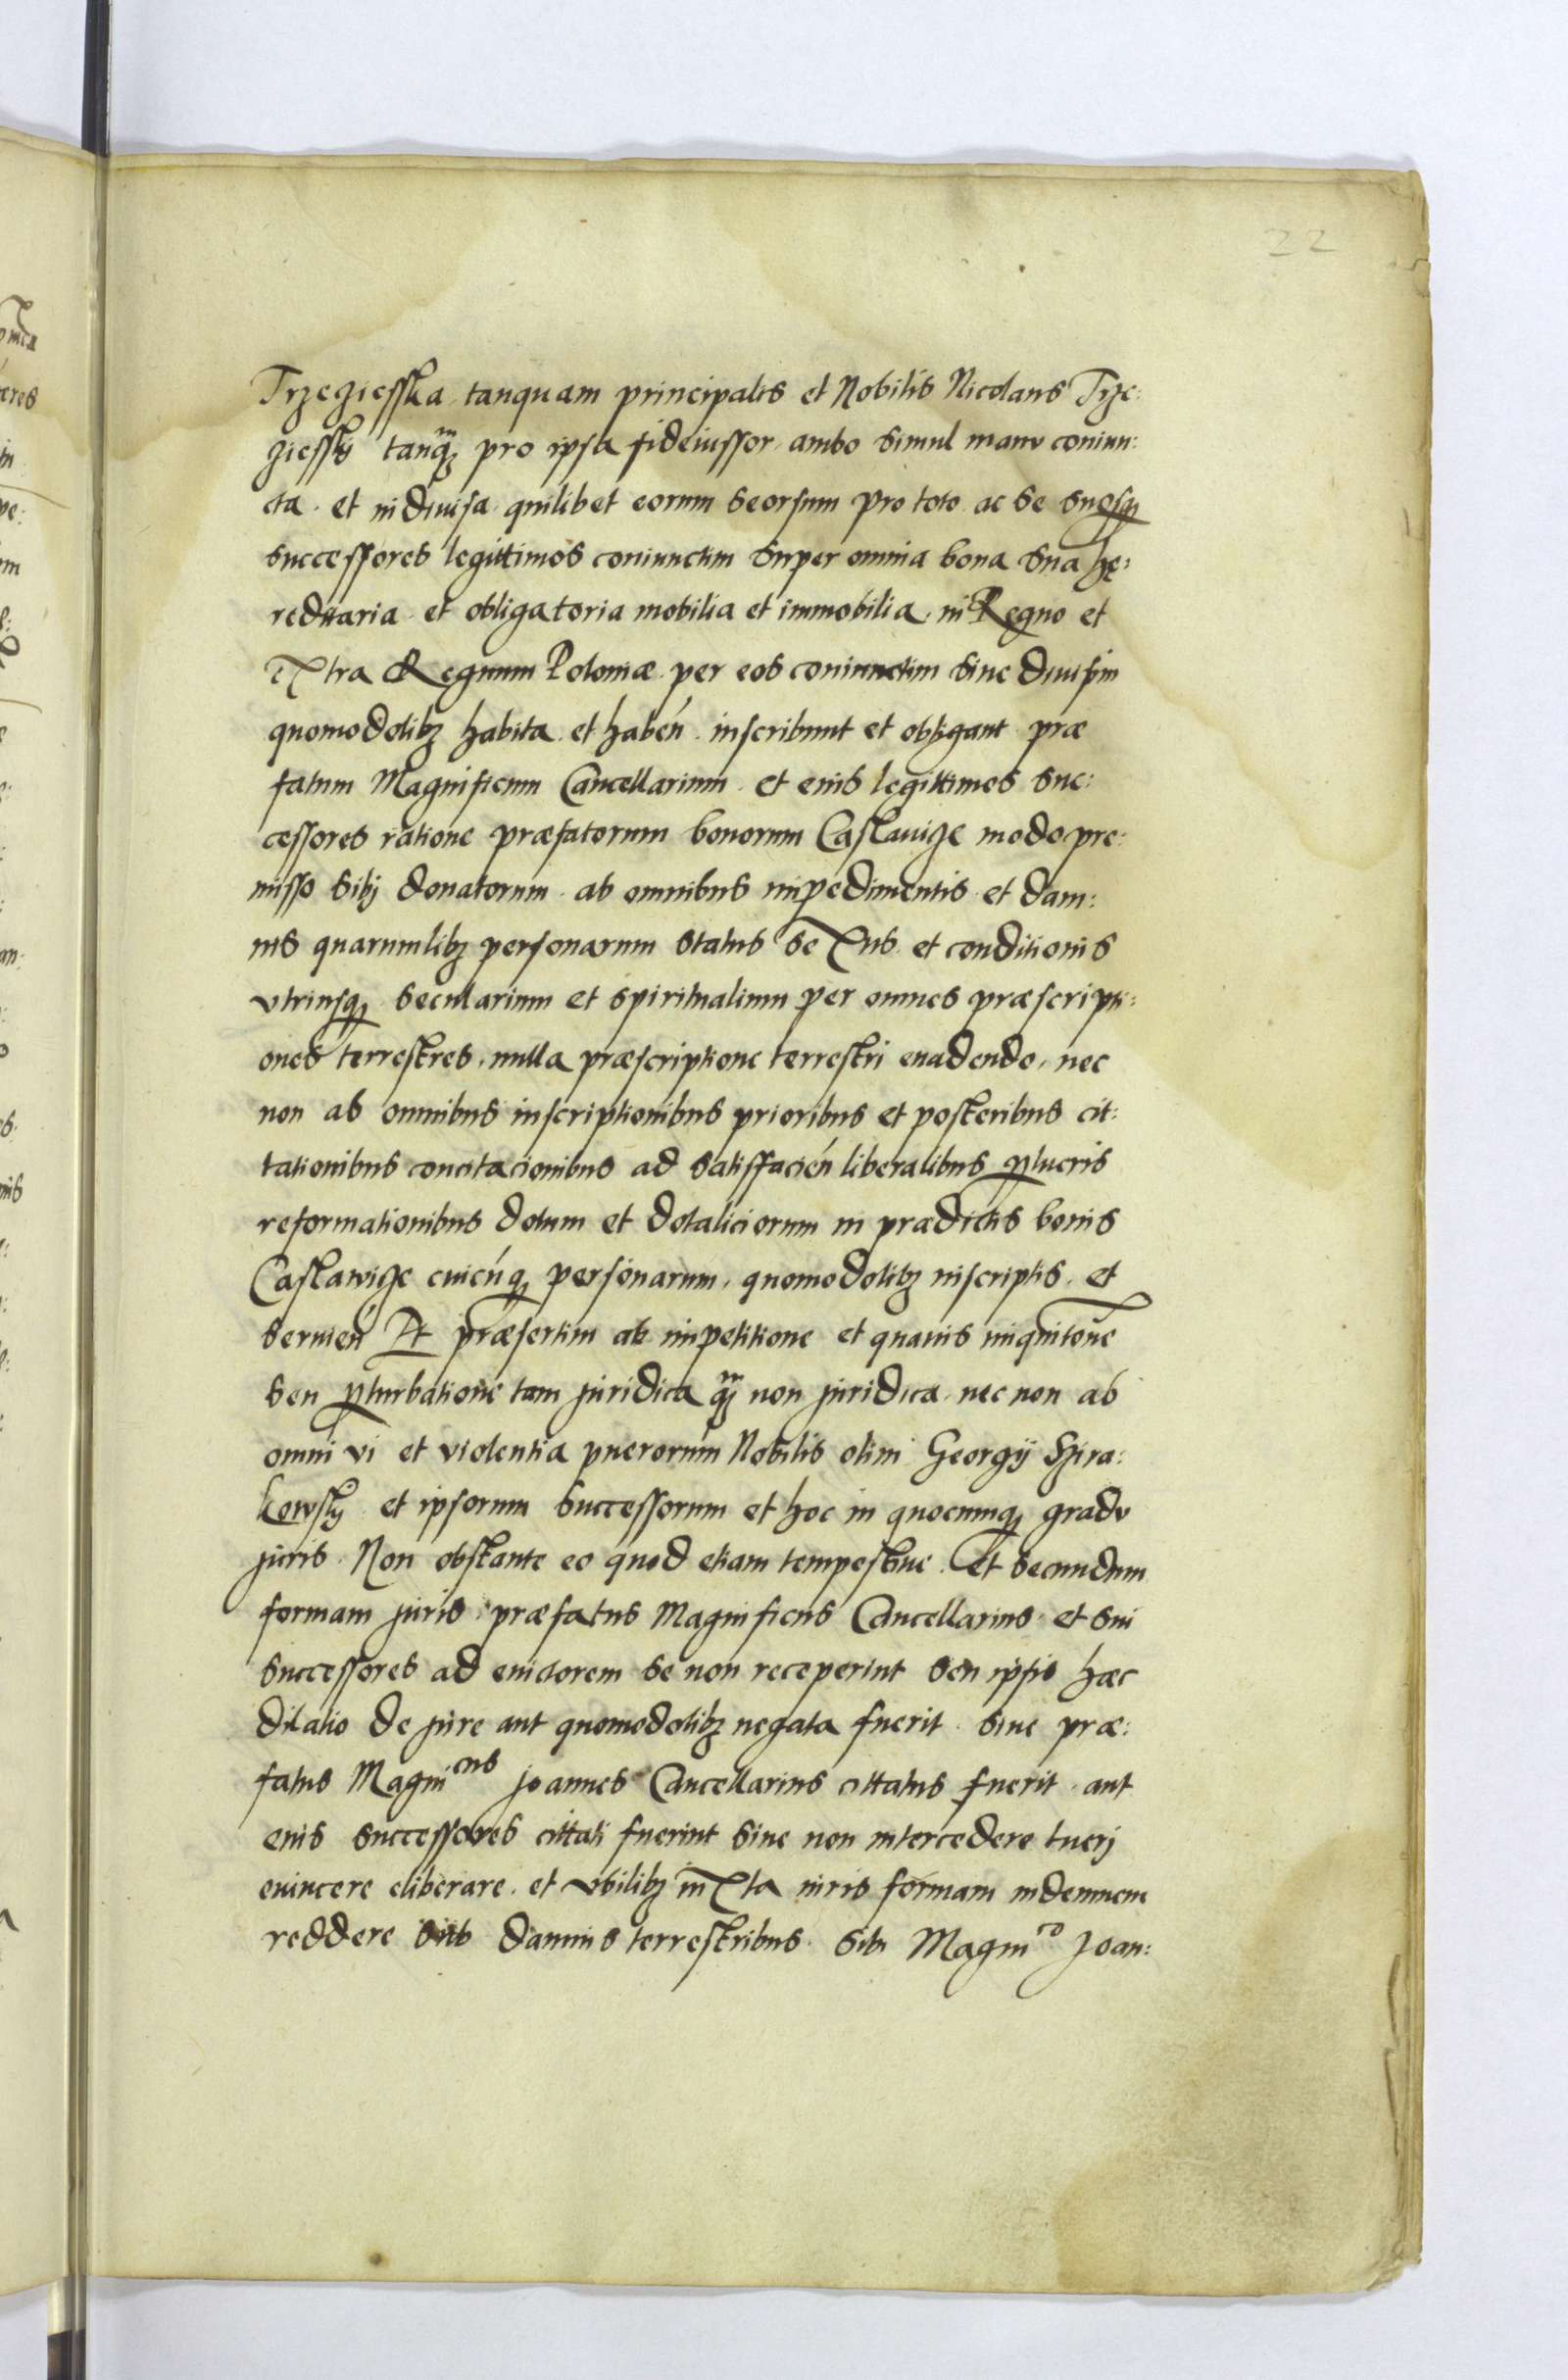 22
Trzeziesska tanquam principalis et Nobilis Nicolaus Trze:
ziessky tanqꝫ pro ipsa fideiussor ambo simul manu coniun:
cta et indiuisa quilibet eorum seorsum pro toto ac se suosqꝫ
successores legittimos coniunctim super omnia bona sua hę:
reditaria et obligatoria mobilia et immobilia in Regno et
extra Regnum Poloniæ per eos coniunctim siue diuisim
quomodolibꝫ habita et habeń inscribunt et obligant præ
fatum Magnificum Cancellarium et eius legittimos suc:
cessores ratione præfatorum bonorum Caslauize modo pre:
misso sibj donatorum ab omnibus impedimentis et dam:
nis quarumlibꝫ personarum status sexus et conditionis
vtriusqꝫ secularium et spiritualium per omnes præscripti:
ones terrestres nulla præscriptione terrestri euadendo, nec
non ab omnibus inscriptionibus prioribus et posteribus cit:
tationibus concitacionibus ad satisfacień liberalibus ꝑlucris
reformationibus dotum et dotaliciorum in prædictis bonis
Caslawize cuicúqꝫ personarum, quomodolibꝫ inscriptis et
seruień Et præsertim ab impetitione et quauis inquitone
seu ꝑturbatione tam juridica qꝫ non juridica nec non ab
omni vi et violentia puerorum Nobilis olim Georgij Szira:
kowsky et ipsorum successorum et hoc in quocunqꝫ gradu
juris Non obstante eo quod etiam tempestiue et secundum
formam juris præfatus Magnificus Cancellarius et sui
successores ad euictorem se non receperint seu ipsis hæc
dilatio de jure aut quomodolibꝫ negata fuerit siue præ:
fatus Magnicus Joannes Cancellarius cittatus fuerit aut
eius successores cittati fuerint siue non intercedere tuerj
euincere eliberare et vbilibꝫ iuxta iuris formam indemnem
reddere sub damnis terrestribus sibi Magnico Joan: